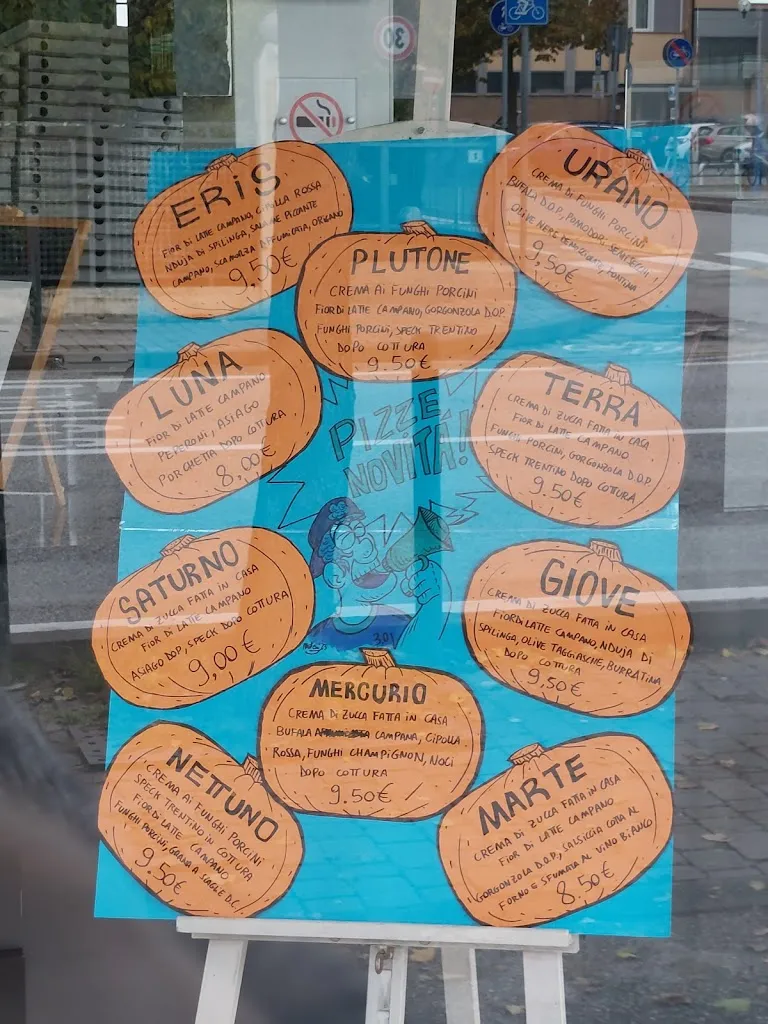 30
ERIS
FIOR DI LATTE CAMPANO, CIPOLLA ROSSA
NDUJA DI SPILINGA, SALAME PICCANTE
CAMPANO, SCAMORZA AFFUMICATA, ORIGANO
9.50€
URANO
CREMA DI FUNGHI PORCINI
BUFALA D.O.P, POMODORI SEMISECCHI
OLIVE NERE FONTINA
9,50€
PLUTONE
CREMA AI FUNGHI PORCINI
FIOR DI LATTE CAMPANO, GORGONZOLA D.O.P
FUNGHI PORCINI, SPECK TRENTINO
DOPO COTTURA
9.50€
LUNA
FIOR DI LATTE CAMPANO
PEPERONI, ASIAGO
PORCHETTA DOPO COTTURA
8,00€
PIZZE
NOVITÀ!
TERRA
CREMA DI ZUCCA FATTA IN CASA
FIOR DI LATTE CAMPANO
FUNGHI PORCINI, GORGONZOLA D.O.P
SPECK TRENTINO DOPO COTTURA
9.50€
SATURNO
CREMA DI ZUCCA FATTA IN CASA
FIOR DI LATTE CAMPANO
ASIAGO DOP, SPECK DOPO COTTURA
9,00€
GIOVE
CREMA DI ZUCCA FATTA IN CASA
FIOR DI LATTE CAMPANO, NDUJA DI
SPILINGA, OLIVE TAGGIASCHE, BURRATINA
DOPO COTTURA
9,50€
MERCURIO
CREMA DI ZUCCA FATTA IN CASA
BUFALA CAMPANA, CIPOLLA
ROSSA, FUNGHI CHAMPIGNON, NOCI
DOPO COTTURA
9.50€
NETTUNO
CREMA AI FUNGHI PORCINI
SPECK TRENTINO IN COTTURA
FIOR DI LATTE CAMPANO
FUNGHI PORCINI, GRANA A SCAGLIE D.C.
9.50€
MARTE
CREMA DI ZUCCA FATTA IN CASA
FIOR DI LATTE CAMPANO
GORGONZOLA D.O.P, SALSICCIA COTTA AL
FORNO E SFUMATA AL VINO BIANCO
8.50€